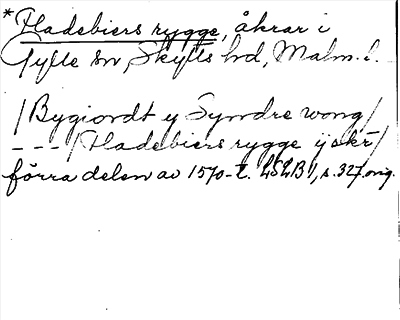 *Hadebiers rygge, åkrar i
Fylle sn, Skytts hd, Malm. l.
/Bygiordt y Syndre wong/
---/Hadebiers rygge ij åkr/
förra delen av 1570-t. LSLB 1, s. 327. orig.